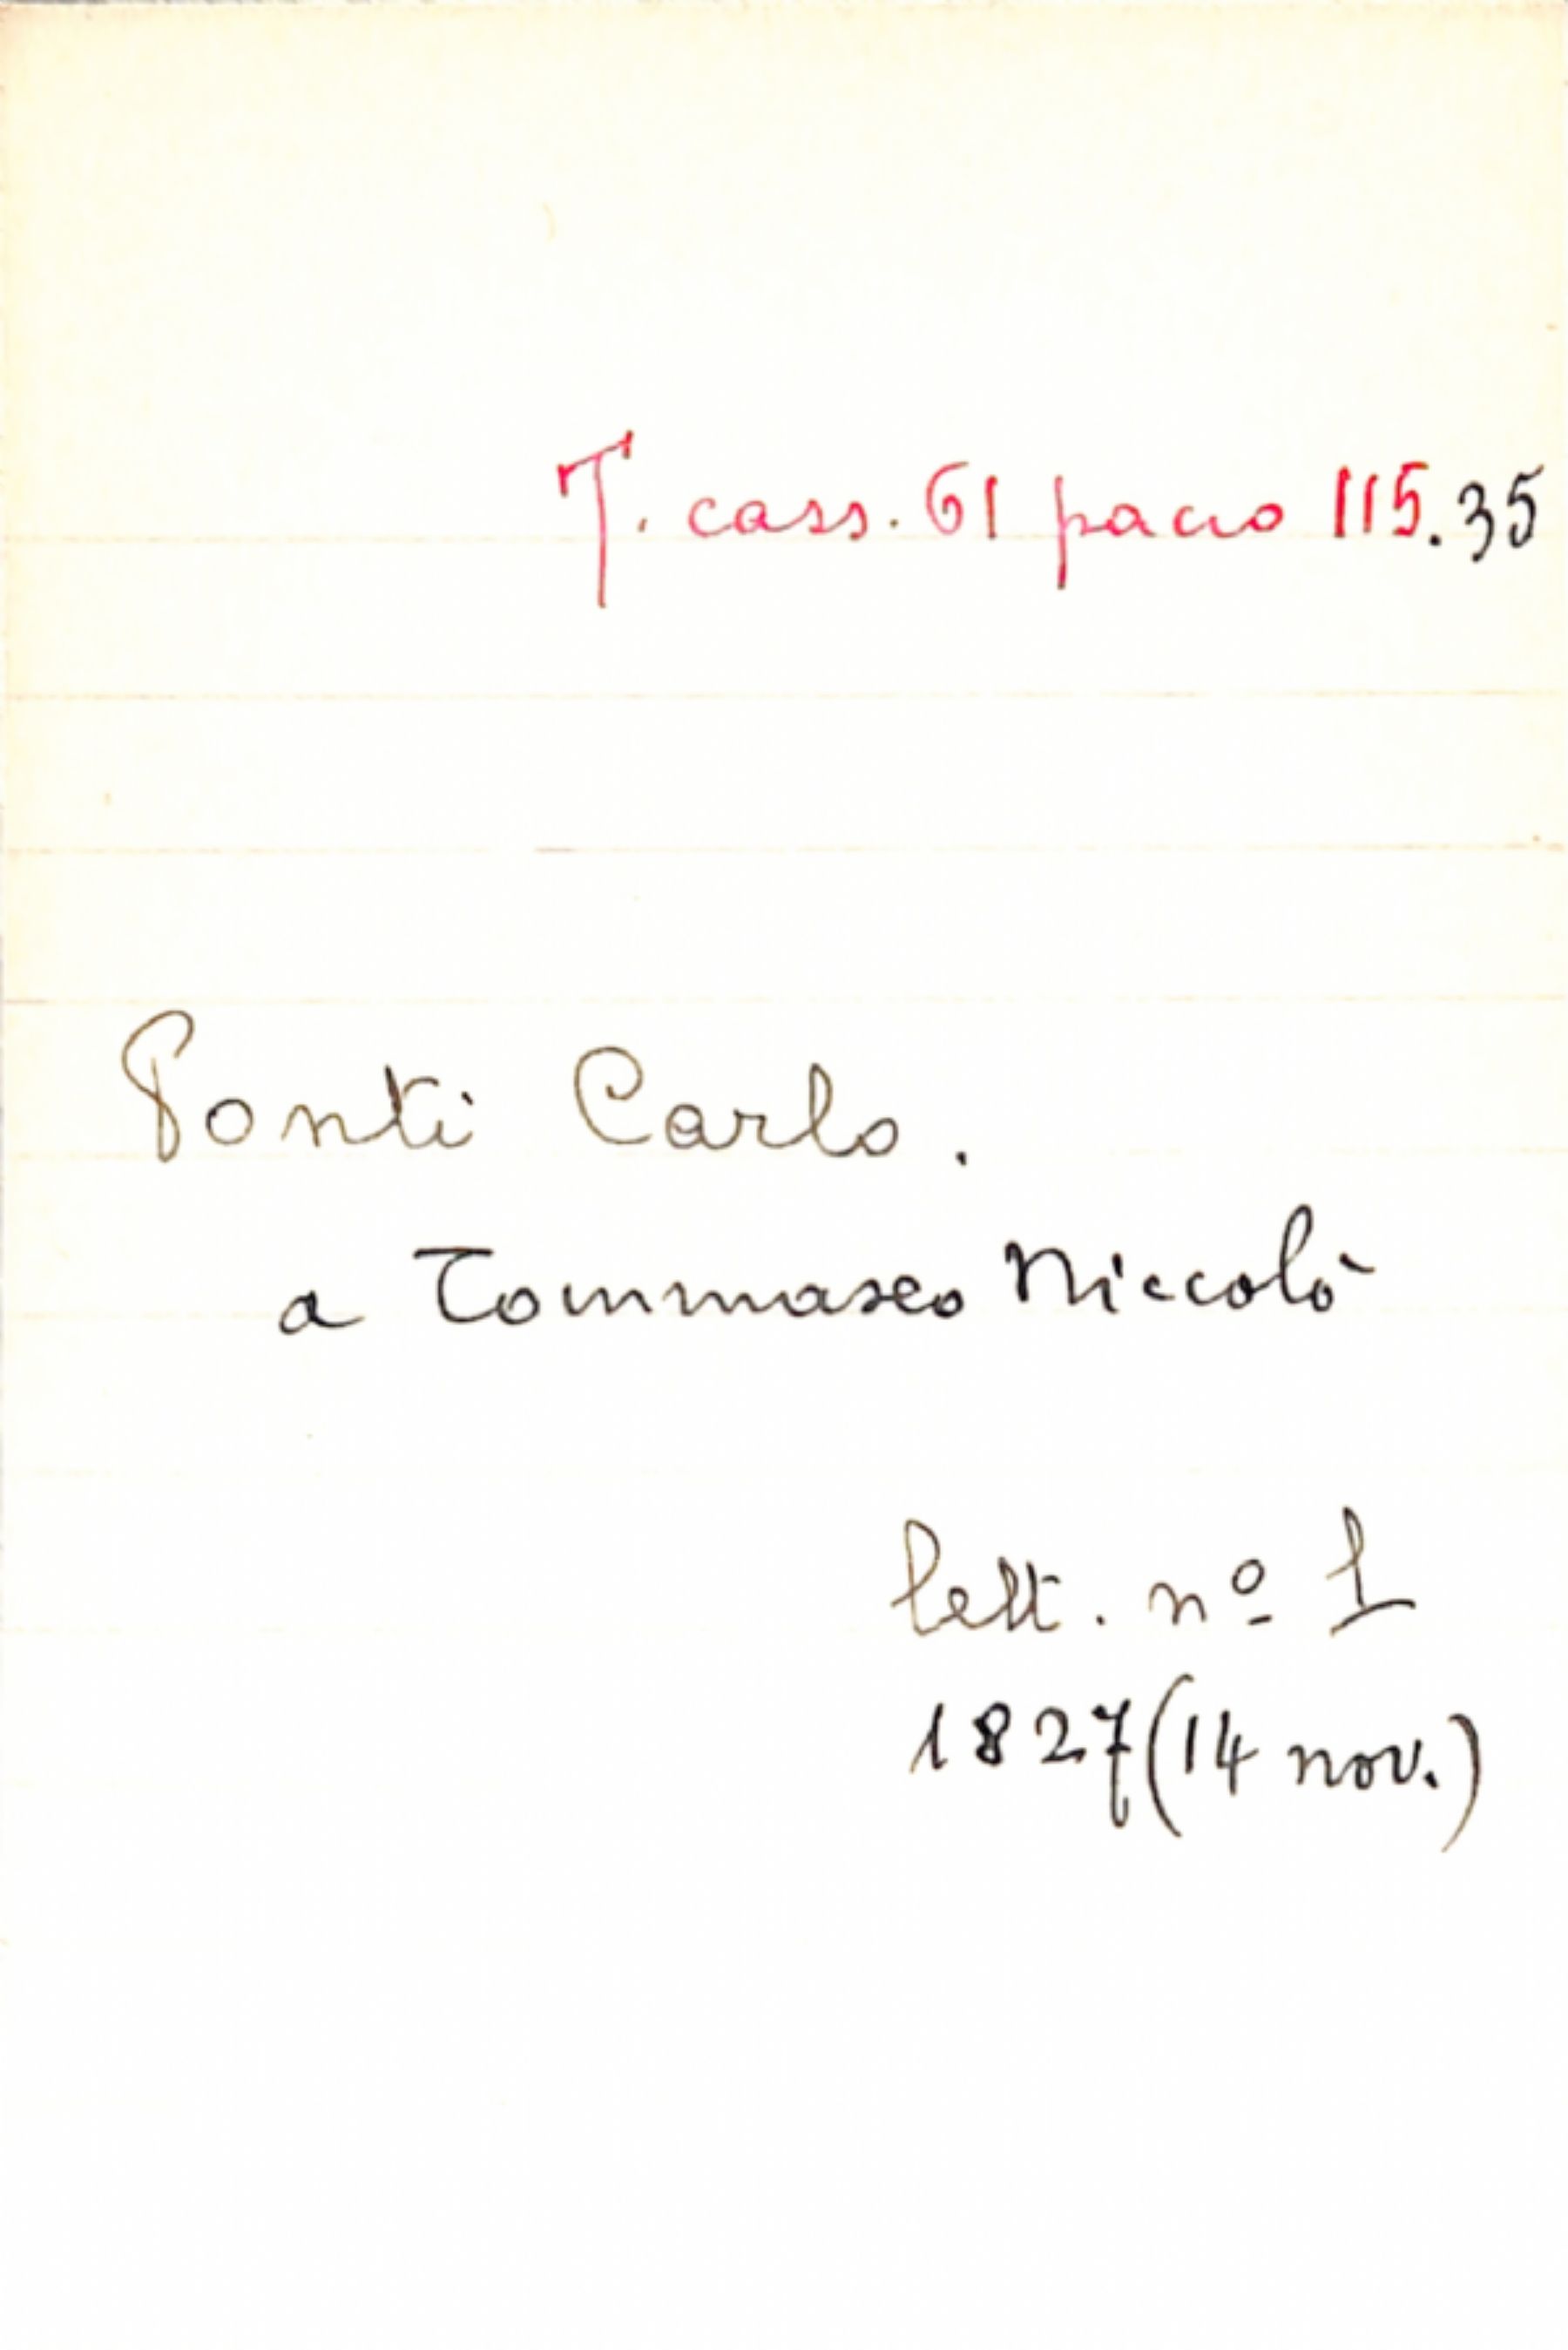 T. cass. 61 pacco 115.35
Ponti Carlo.
a Tommaseo Niccolò
lett. nº 1
1827 (14 nov.)